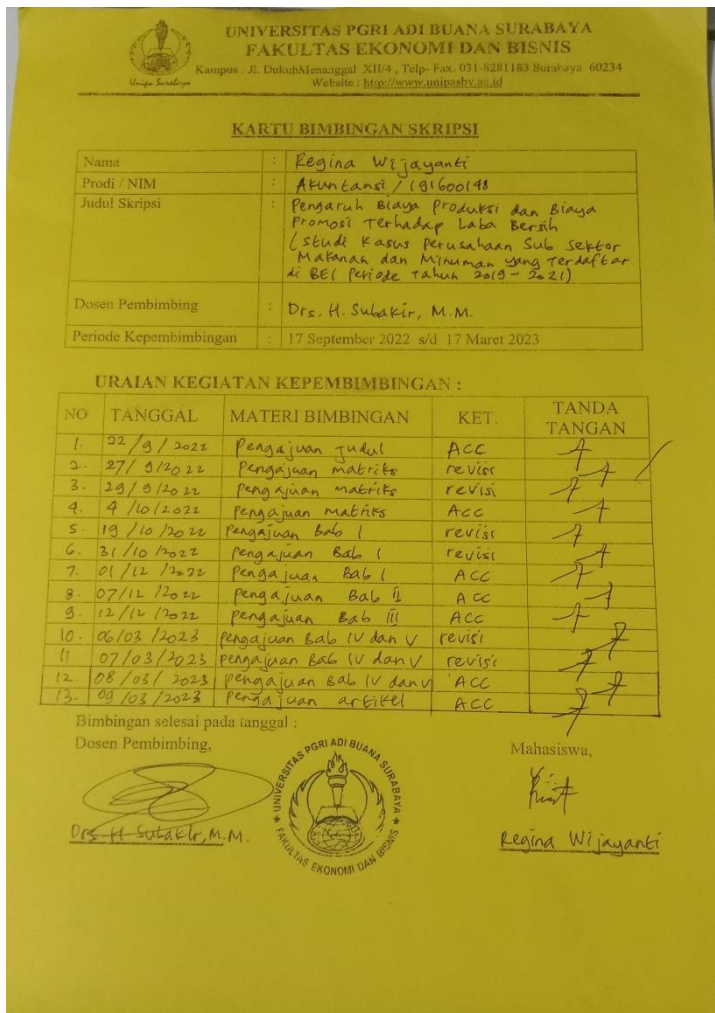 UNIVERSITAS PGRI ADI BUANA SURABAYA
FAKULTAS EKONOMI DAN BISNIS
Kampus : Jl. DukuhMenanggal XII/4 , Telp- Fax. 031-8281183 Surabaya 60234
Website : http://www.unipasby.ac.id
Unipa Surabaya
KARTU BIMBINGAN SKRIPSI
Nama : Regina Wijayanti
Prodi / NIM : Akuntansi / 191600148
Judul Skripsi : Pengaruh Biaya Produksi dan Biaya
Promosi Terhadap Laba Bersih
(Studi Kasus Perusahaan Sub Sektor
Makanan dan Minuman yang Terdaftar
di BEI Periode Tahun 2019 - 2021)
Dosen Pembimbing : Drs. H. Subakir, M.M.
Periode Kepembimbingan : 17 September 2022 s/d 17 Maret 2023
URAIAN KEGIATAN KEPEMBIMBINGAN :
NO TANGGAL MATERI BIMBINGAN KET. TANDA TANGAN
1. 22/9/2022 Pengajuan Judul ACC
2. 27/9/2022 Pengajuan matriks revisi
3. 29/9/2022 Pengajuan matriks revisi
4. 4/10/2022 Pengajuan matriks Acc
5. 19/10/2022 Pengajuan Bab I revisi
6. 31/10/2022 Pengajuan Bab I revisi
7. 01/12/2022 Pengajuan Bab I ACC
8. 07/12/2022 Pengajuan Bab II ACC
9. 12/12/2022 Pengajuan Bab III ACC
10. 06/03/2023 Pengajuan Bab IV dan V revisi
11. 07/03/2023 Pengajuan Bab IV dan V revisi
12. 08/03/2023 Pengajuan Bab IV dan V ACC
13. 09/03/2023 Pengajuan artikel ACC
Bimbingan selesai pada tanggal :
Dosen Pembimbing,
Mahasiswa,
UNIVERSITAS PGRI ADI BUANA SURABAYA
FAKULTAS EKONOMI DAN BISNIS
Drs. H. Subakir, M.M.
Regina Wijayanti